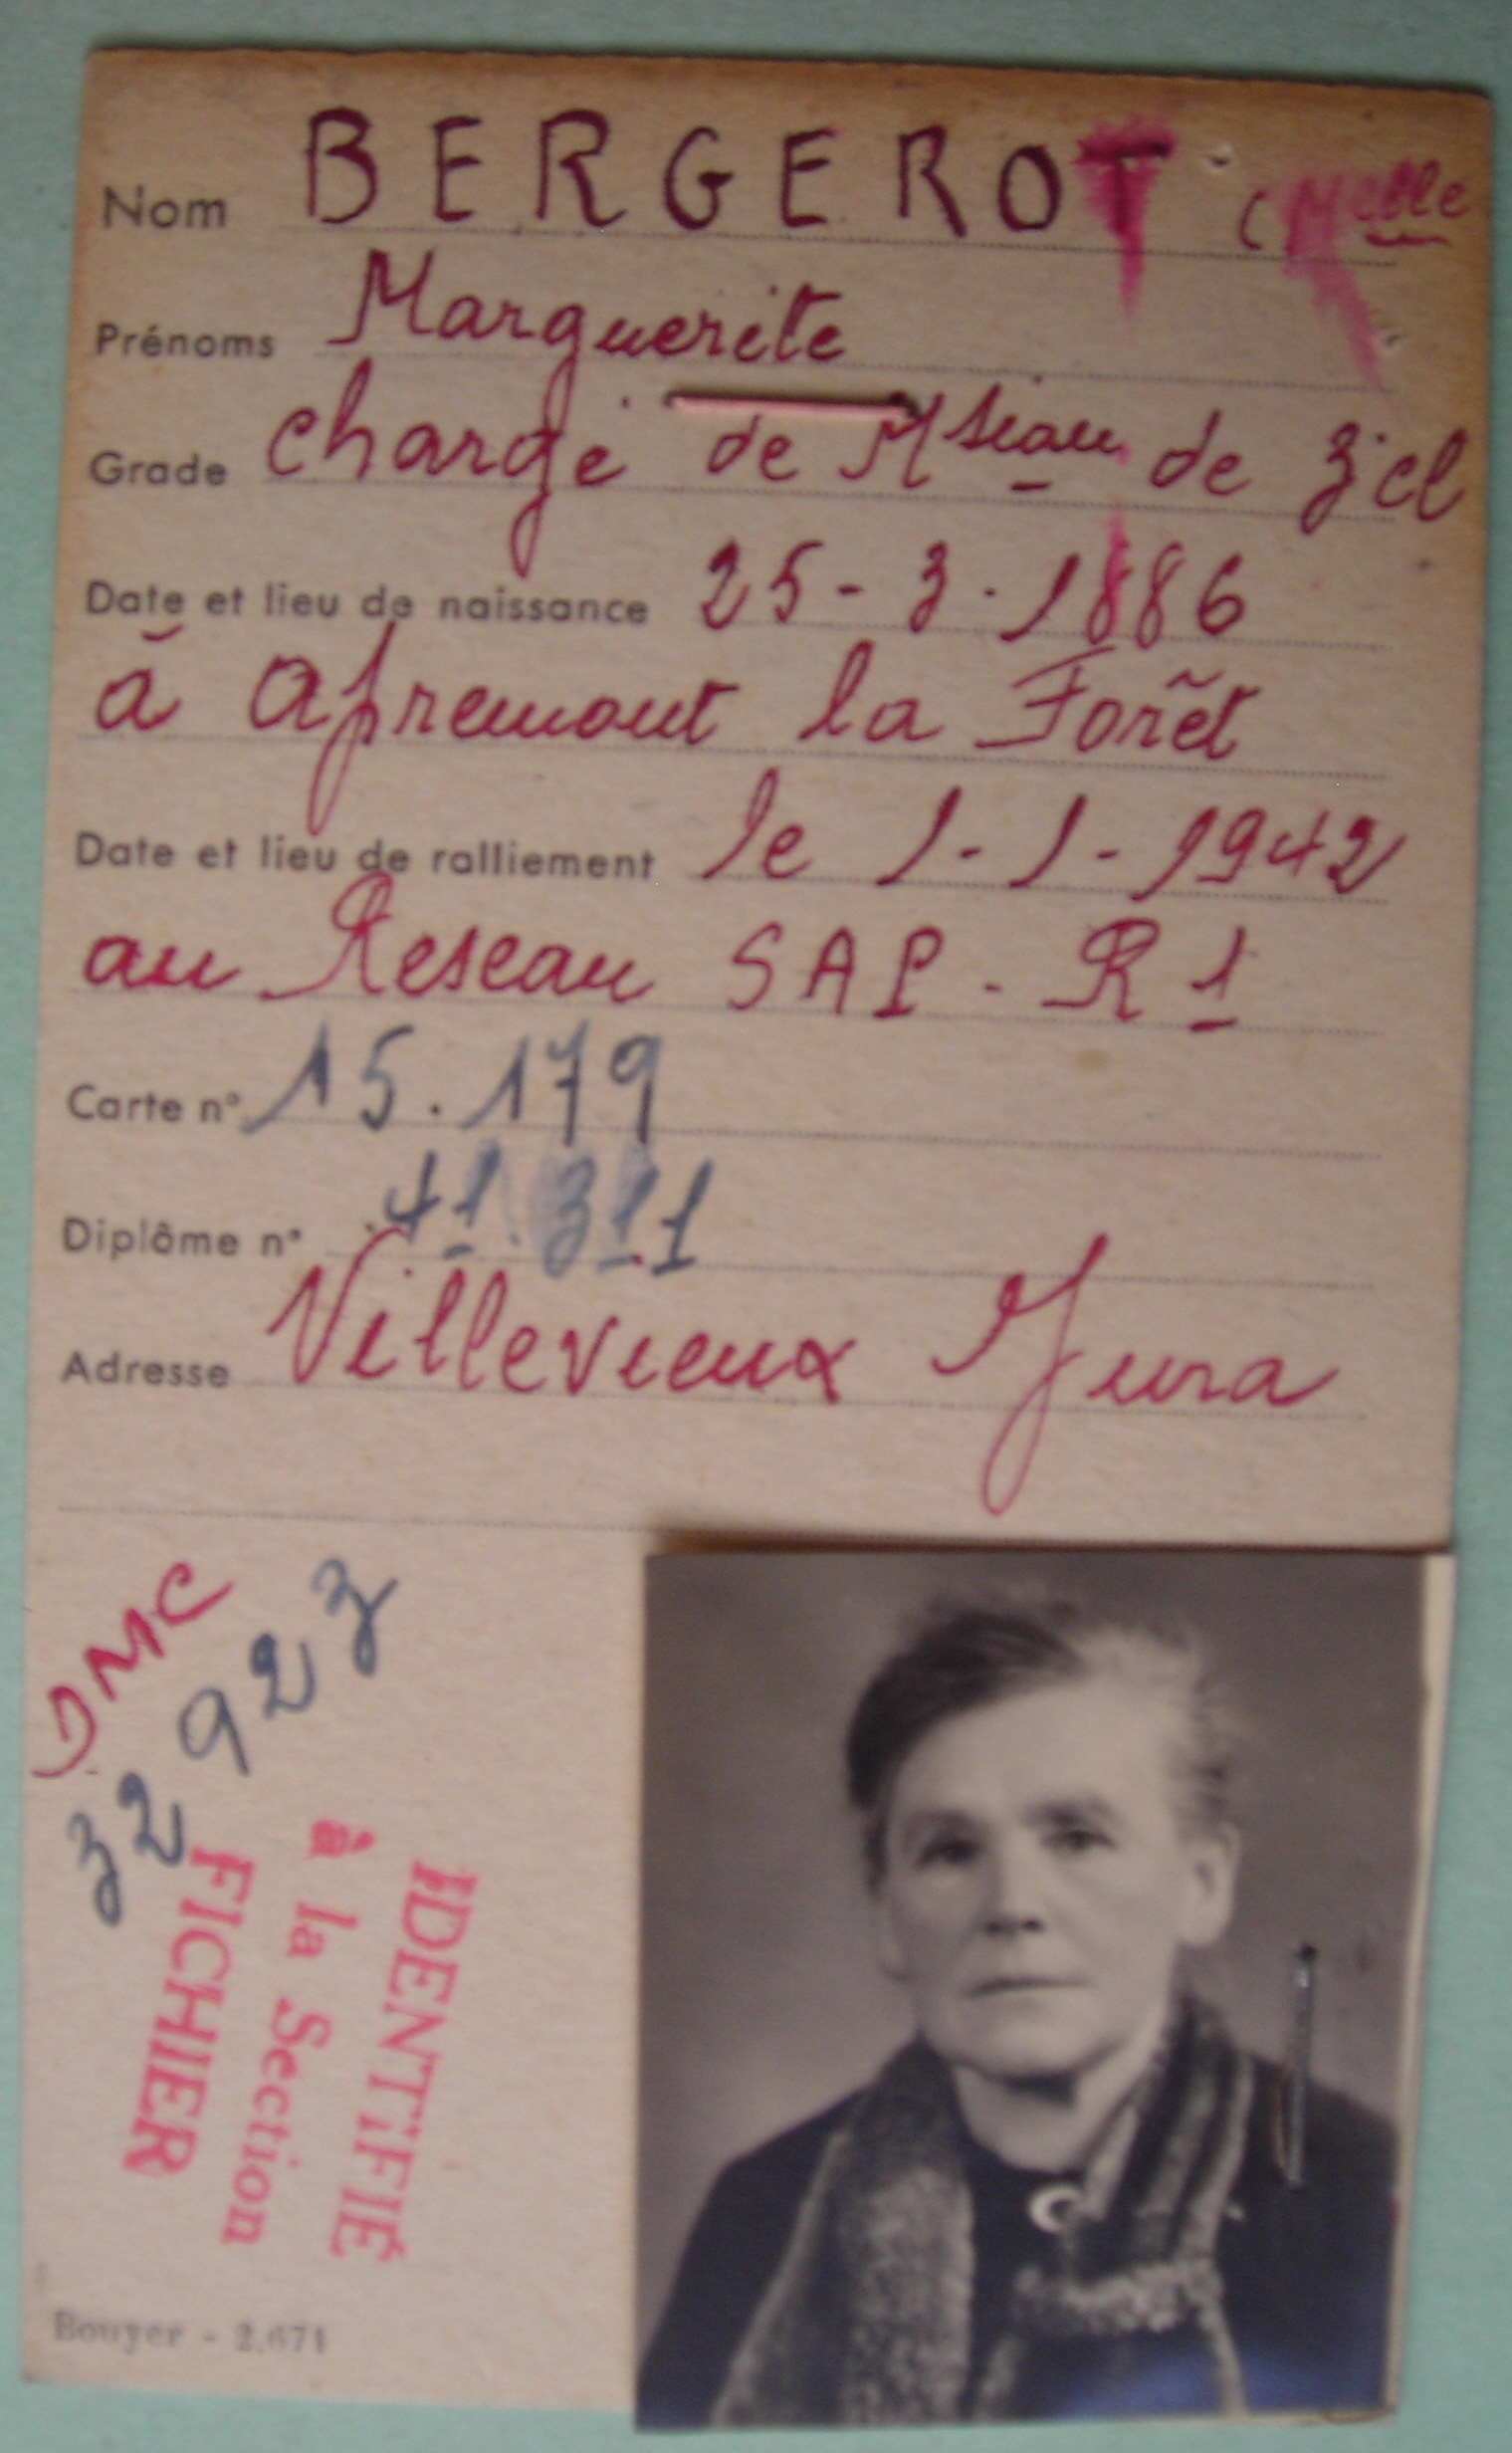 Nom BERGEROT (Melle
Prénoms Marguerite
Grade chargé de Msion de 3è cl
Date et lieu de naissance 25-3-1886
à Apremont la Forêt
Date et lieu de ralliement le 1-1-1942
au Reseau SAP-R1
Carte n° 15.179
Diplôme n° 41.311
Adresse Villevieux Jura
32923
IDENTIFIÉ
à la Section
FICHIER
Bouyer - 2.671